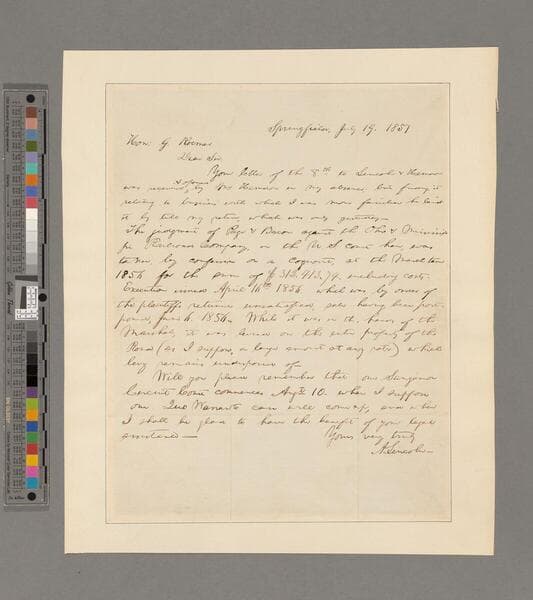 Springfield, July 19. 1857
Hon: G. Koerner
Dear Sir
Your letter of the 8th to Lincoln & Herndon
was received, & opened by Mr Herndon in my absence but finding it
relating to business with which I was more familiar he laid
it by till my return, which was only yesterday—
The judgment of Page & Bacon against the Ohio & Mississip-
pi Railroad Company, in the U S court here, was
taken, by confession on a cognovit, at the March term
1856 for the sum of $ 313,413,79. including costs.
Execution issued April 16th 1856, which was by order of
the plaintiffs returned unsatisfied, sale having been post-
poned, June 4. 1856. While it was in the hands of the
Marshal, it was levied on the entire property of the
Road (as I suppose, a large amount at any rate) which
levy remains undisposed of—
Will you please remember that our Sangamon
Circuit Court commences Aug. 10. when I suppose
our Quo Warranto case will come up, and when
I shall be glad to have the benefit of your legal
assistance—
Yours very truly
A. Lincoln—